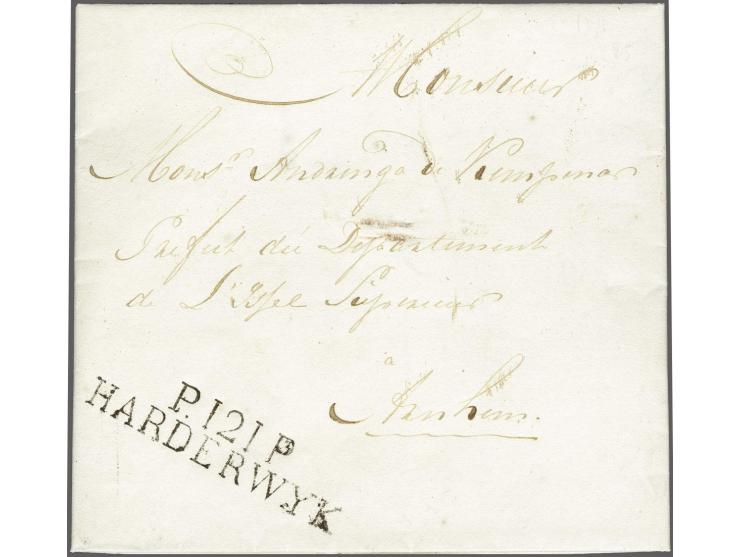 Monsieur
Monsr Andringa de Kempenaer
Prefect du Departement
de L'Issel Superieur
a
Arnhem.
P.121.P
HARDERWYK